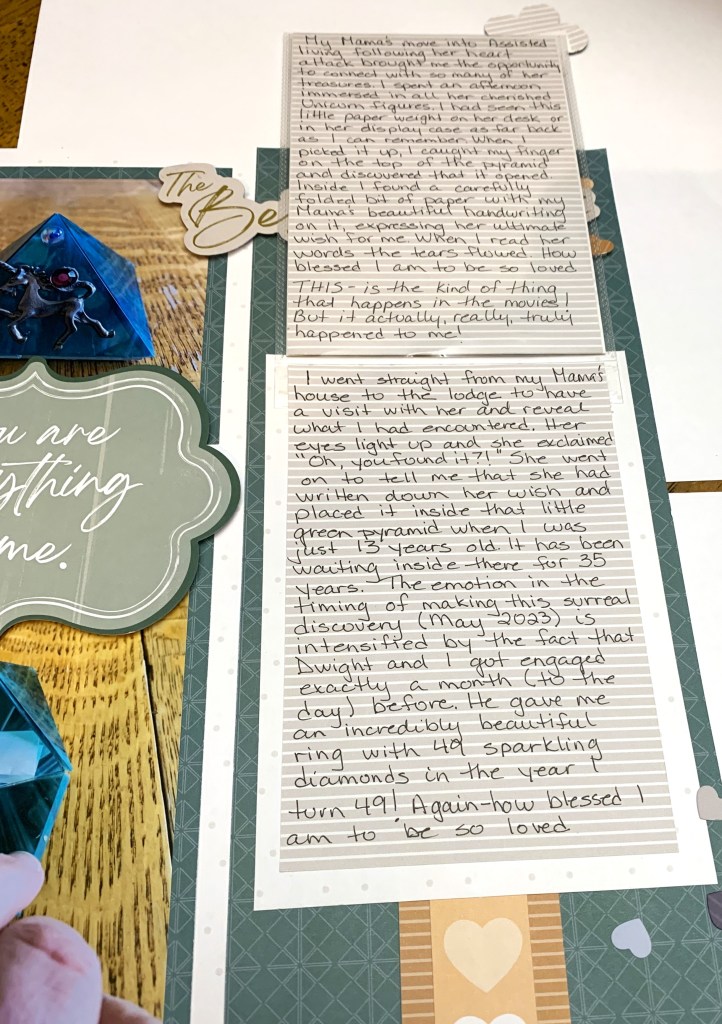 My Mama's move into Assisted
living following her heart
attack brought me the opportunity
to connect with so many of her
treasures. I spent an afternoon
immersed in all her cherished
Unicorn figures. I had seen this
little paper weight on her desk or
in her display case as far back
as I can remember. When I
picked it up, I caught my finger
on the top of the pyramid
and discovered that it opened.
Inside I found a carefully
folded bit of paper with my
Mama's beautiful handwriting
on it, expressing her ultimate
wish for me. When I read her
words the tears flowed. How
blessed I am to be so loved
THIS - is the kind of thing
that happens in the movies!
But it actually, really, truly
happened to me!
The
Be
I went straight from my Mama's
house to the lodge to have
a visit with her and reveal
what I had encountered. Her
eyes light up and she exclaimed
"Oh, you found it?!" She went
on to tell me that she had
written down her wish and
placed it inside that little
green pyramid when I was
just 13 years old. It has been
waiting inside there for 35
years. The emotion in the
timing of making this surreal
discovery (May 2023) is
intensified by the fact that
Dwight and I got engaged
exactly a month (to the
day) before. He gave me
an incredibly beautiful
ring with 49 sparkling
diamonds in the year I
turn 49! Again-how blessed I
am to be so loved
u are
ything
me.